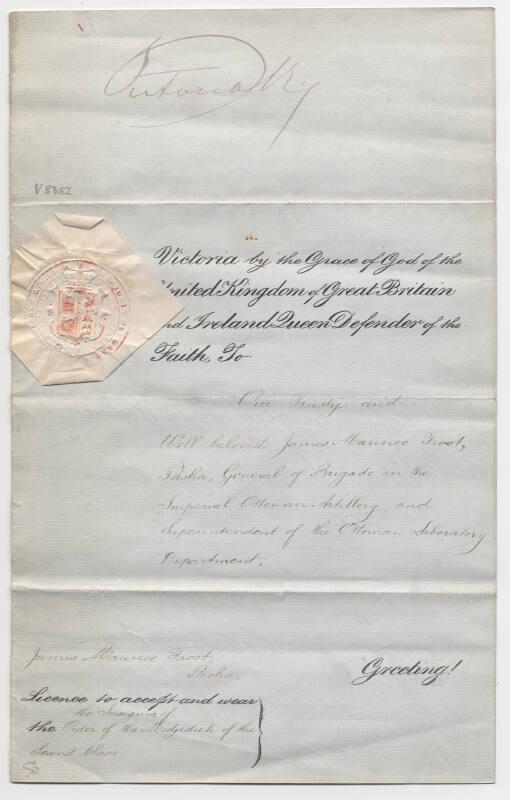 Victoria R
V 8352
Victoria by the Grace of God of the
United Kingdom of Great Britain
and Ireland Queen Defender of the
Faith, To
Our Trusty and
Well beloved James Maurice Frost,
Pasha, General of Brigade in the
Imperial Ottoman Artillery, and
Superintendent of the Ottoman Laboratory
Department.
James Maurice Frost,
Pasha,
Greeting!
Licence to accept and wear
the Insignia of
the Order of the Medjidieh of the
Second Class